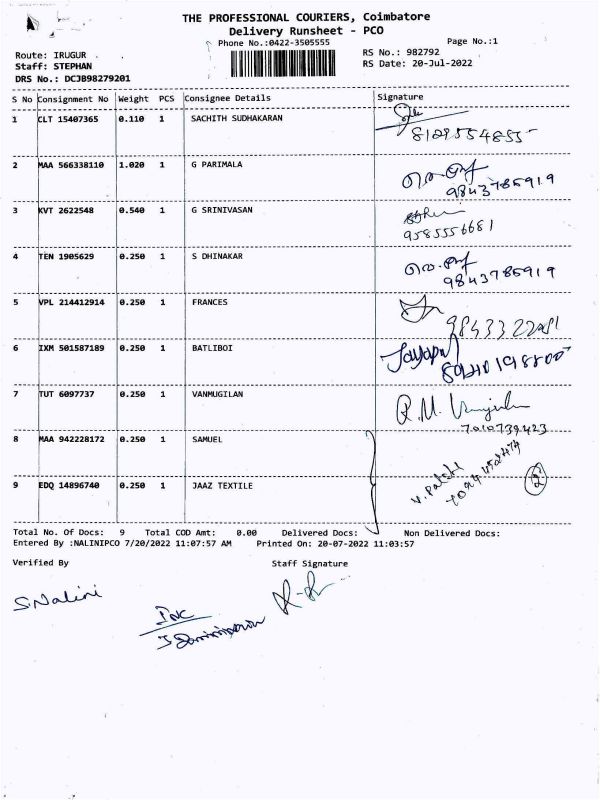 THE PROFESSIONAL COURIERS, Coimbatore
Delivery Runsheet - PCO
Phone No.:0422-3505555
Page No.:1
Route: IRUGUR
RS No.: 982792
Staff: STEPHAN
RS Date: 20-Jul-2022
DRS No.: DCJB98279201
S No Consignment No Weight PCS Consignee Details Signature
1 CLT 15407365 0.110 1 SACHITH SUDHAKARAN
8129554855
2 MAA 566338110 1.020 1 G PARIMALA
9843785919
3 KVT 2622548 0.540 1 G SRINIVASAN
9585556681
4 TEN 1905629 0.250 1 S DHINAKAR
9843785919
5 VPL 214412914 0.250 1 FRANCES
6 IXM 501587189 0.250 1 BATLIBOI
7 TUT 6097737 0.250 1 VANMUGILAN
R.M.
7010739423
8 MAA 942228172 0.250 1 SAMUEL
9 EDQ 14896740 0.250 1 JAAZ TEXTILE
2
Total No. Of Docs: 9 Total COD Amt: 0.00 Delivered Docs: Non Delivered Docs:
Entered By :NALINIPCO 7/20/2022 11:07:57 AM Printed On: 20-07-2022 11:03:57
Verified By Staff Signature
S.Nalini